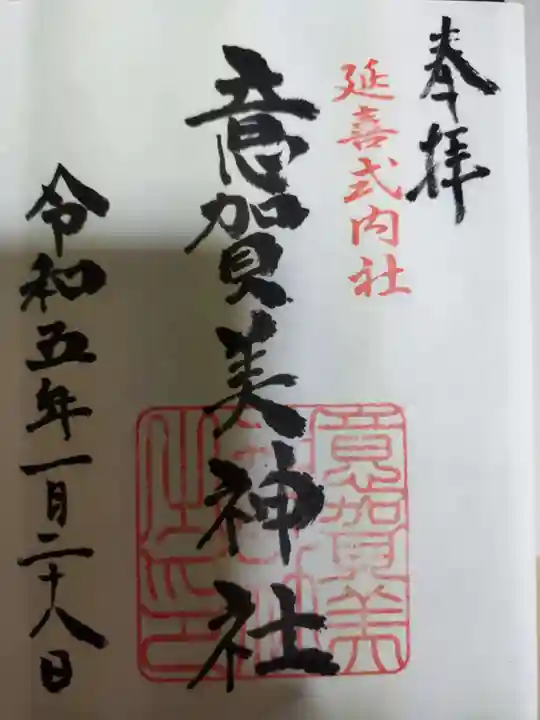 奉拝
延喜式内社
意賀美神社
意賀美
令和五年一月二十八日